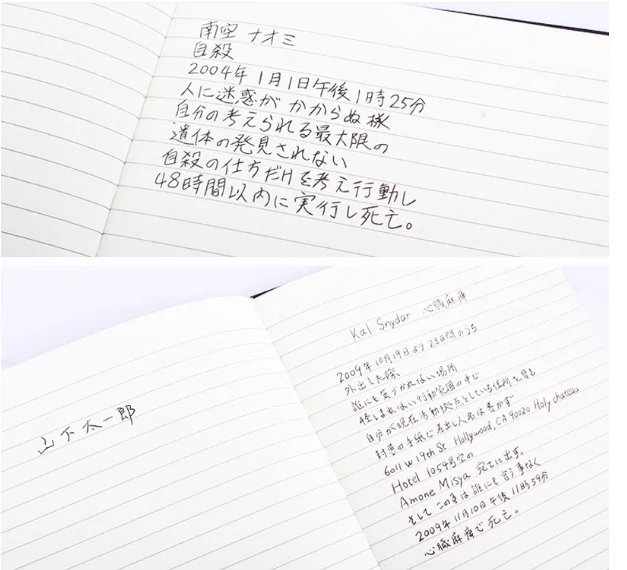 南空 ナオミ
自殺
2004年1月1日午後1時25分
人に迷惑が かからぬ様
自分の考えられる最大限の
遺体の発見されない
自殺の仕方だけを考え行動し
48時間以内に実行し死亡。
山下太一郎
Kal Snydar 心臓麻痺
2009年10月19日より23日間のうち
外出した際、
誰にも気づかれない場所
怪しまれない行動範囲の中で
自分が現在活動拠点としている住所を
封書の手紙で差出し人名は書かず
6011 W 19th St Hollywood, CA 90020 Holy chateau
Hotel 1054号室の
Amone Misya 宛てに出す。
そしてこの事は誰にも言う事なく
2009年11月10日午後11時59分
心臓麻痺で死亡。